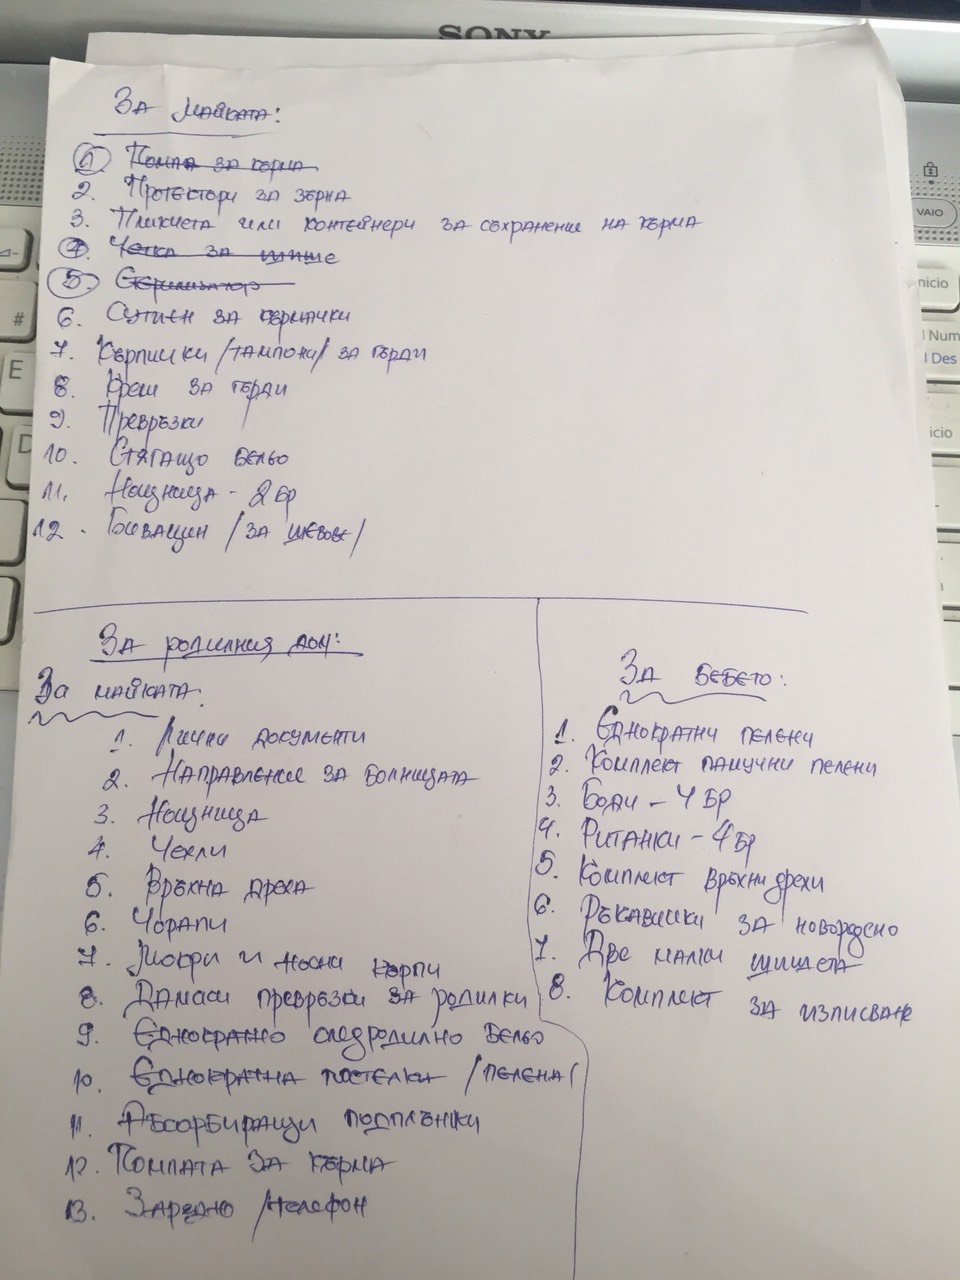 SONY
За майката:
1. Помпа за кърма
2. Протектори за зърна
3. Пликчета или контейнери за съхранение на кърма
4. Четка за шише
5. Стерилизатор
6. Сутиен за кърмачки
7. Кърпички /тампони/ за гърди
8. Крем за гърди
9. Превръзки
10. Стягащо бельо
11. Нощница - 2 бр
12. Биващин /за шевове/
За родилния дом:
За майката:
1. Лични документи
2. Направление за болницата
3. Нощница
4. Чехли
5. Връхна дреха
6. Чорапи
7. Мокри и носни кърпи
8. Дамски превръзки за родилки
9. Еднократно следродилно бельо
10. Еднократна постелки /пелена/
11. Абсорбиращи подплънки
12. Помпата за кърма
13. Зарядно /телефон
За бебето:
1. Еднократни пелени
2. Комплект памучни пелени
3. Боди - 4 бр
4. Ританки - 4 бр
5. Комплект връхни дрехи
6. Ръкавички за новородено
7. Две малки шишета
8. Комплект за изписване
VAIO
nicio
Num
Des
icio
#
E
D